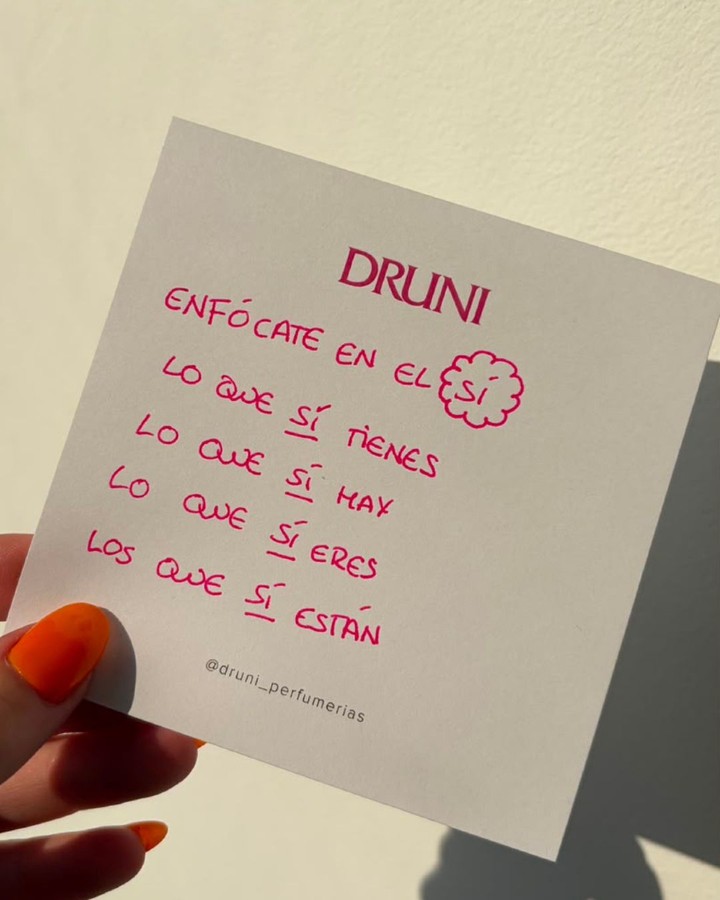 DRUNI
ENFÓCATE EN EL SÍ
LO QUE SÍ TIENES
LO QUE SÍ HAY
LO QUE SÍ ERES
LOS QUE SÍ ESTÁN
@druni_perfumerias